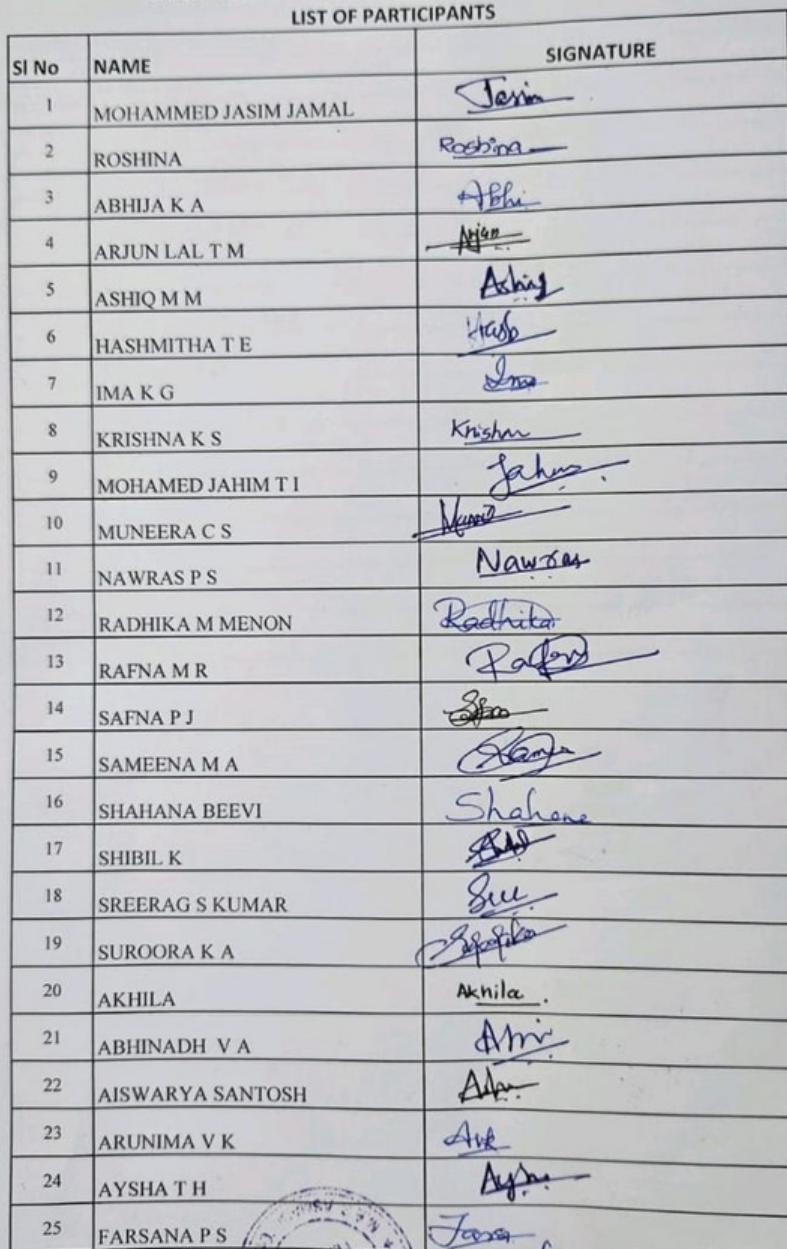 LIST OF PARTICIPANTS
SI No NAME SIGNATURE
1 MOHAMMED JASIM JAMAL Jasim
2 ROSHINA Roshina
3 ABHIJA K A Abhi
4 ARJUN LAL T M Arjun
5 ASHIQ M M Ashiq
6 HASHMITHA T E Hash
7 IMA K G Ima
8 KRISHNA K S Krishna
9 MOHAMED JAHIM T I Jahim
10 MUNEERA C S
11 NAWRAS P S Nawras
12 RADHIKA M MENON Radhika
13 RAFNA M R
14 SAFNA P J
15 SAMEENA M A
16 SHAHANA BEEVI Shahana
17 SHIBIL K
18 SREERAG S KUMAR
19 SUROORA K A
20 AKHILA Akhila
21 ABHINADH V A
22 AISWARYA SANTOSH
23 ARUNIMA V K
24 AYSHA T H
25 FARSANA P S